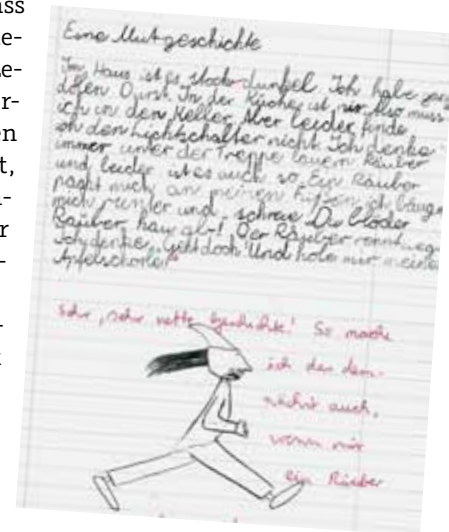 ss
e-
e-
r-
en
t,
-
r
-
-
Eine Mutgeschichte
Im Haus ist es stockdunkel Ich habe
Durst In der Küche ist nix Also muss
ich in den Keller Aber leider finde
ich den Lichtschalter nicht Ich denke
immer unter der Treppe lauern Räuber
und leider ist es auch so Ein Räuber
packt mich an meinen Füßen ich
mich runter und schreie Du blöder
Räuber hau ab! Der Räuber rennt weg
Ich denke „Geht doch" Und hole mir meine
Apfelschorle!
Sehr, sehr nette Geschichte! So mache
ich das dem-
nächst auch,
wenn mir
ein Räuber